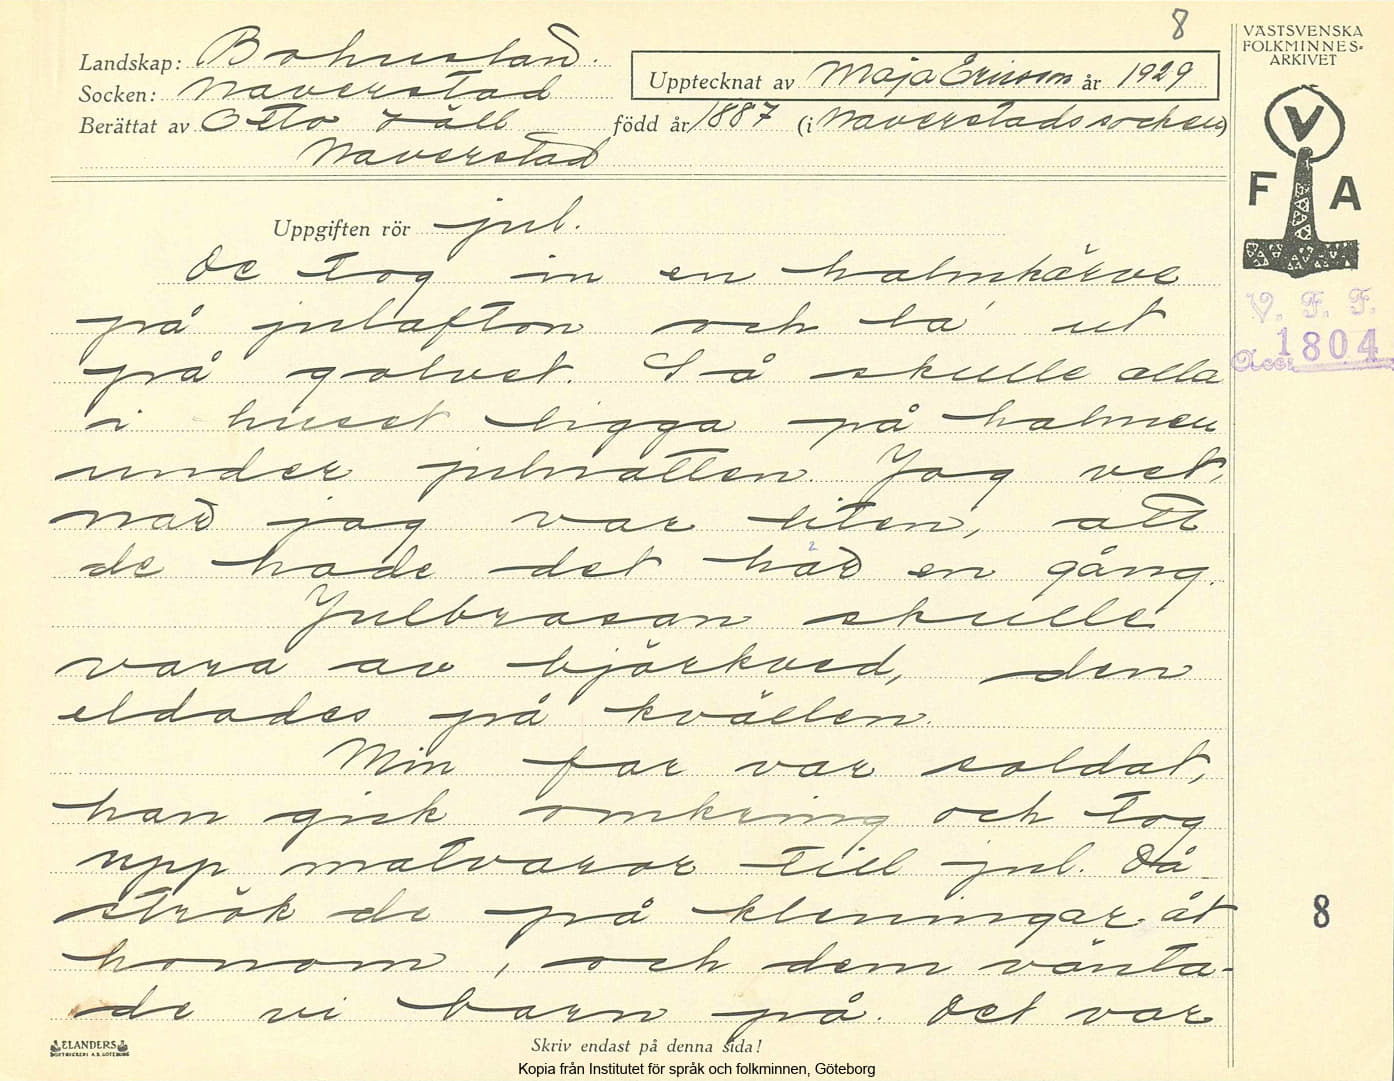 8
VÄSTSVENSKA
FOLKMINNES-
ARKIVET
Landskap: Bohuslän.
Upptecknat av Maja Ericson år 1929
Socken: Naverstad
Berättat av Otto Käll född år 1887 (i Naverstads socken)
Naverstad
V
F A
Uppgiften rör jul.
De tog in en halmkärve
på julafton och la' ut
V. F. F.
Acc. 1804
på golvet. Så skulle alla
i huset ligga på halmen
under julnatten. Jag vet,
när jag var liten, att
de hade det här en gång.
Julbrasan skulle
vara av björkved, den
eldades på kvällen.
Min far var soldat,
han gick omkring och tog
upp matvaror till jul. Då
strök de på kleningar åt
8
honom, och dem vänta-
de vi barn på. Det var
ELANDERS
BOKTRYCKERI A.B. GÖTEBORG
Skriv endast på denna sida!
Kopia från Institutet för språk och folkminnen, Göteborg